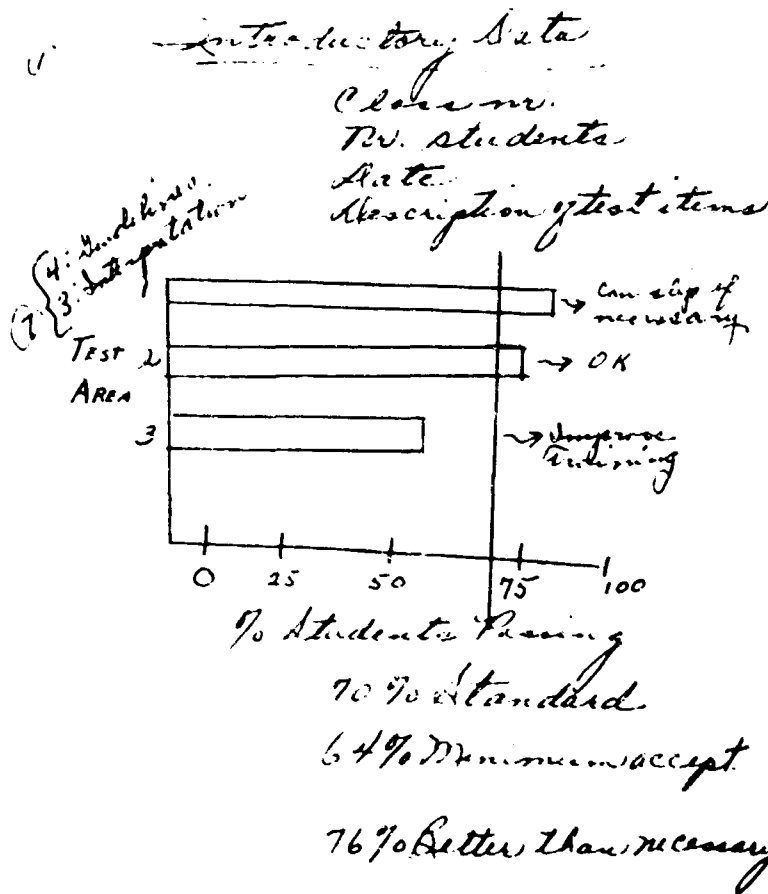 Introductory Data
Class nr.
Nr. students
Date
Description of test items
4: Guidelines
3: Interpretation
can slip if
necessary
TEST 2
OK
AREA
3
Improve
Training
0 25 50 75 100
% Students Passing
70% Standard
64% Minimum accept
76% Better than necessary